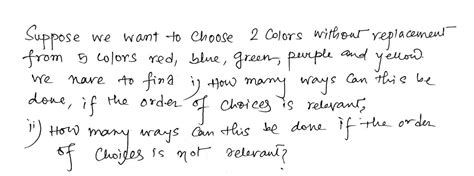 Suppose we want to choose 2 colors without replacement
from 5 colors red, blue, green, purple and yellow.
we have to find i) How many ways can this be
done, if the order of choices is relevant,
ii) How many ways can this be done if the order
of choices is not relevant?